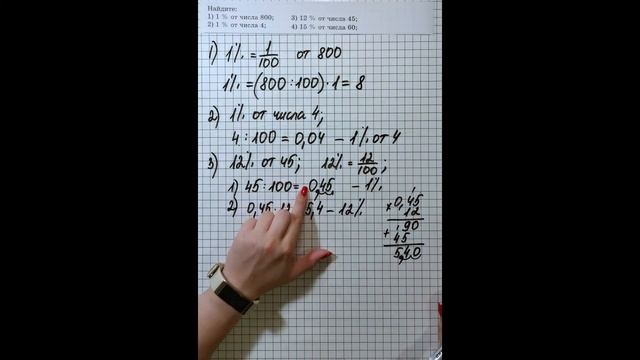 Найдите:
1) 1 % от числа 800; 3) 12 % от числа 45;
2) 1 % от числа 4; 4) 15 % от числа 60;
1) 1% = 1/100 от 800
1% = (800 : 100) · 1 = 8
2) 1% от числа 4;
4 : 100 = 0,04 – 1% от 4
3) 12% от 45; 12% = 12/100;
1) 45 : 100 = 0,45 – 1%
2) 0,45 · 12 5,4 – 12%
× 0,45
12
+ 90
45
5,40